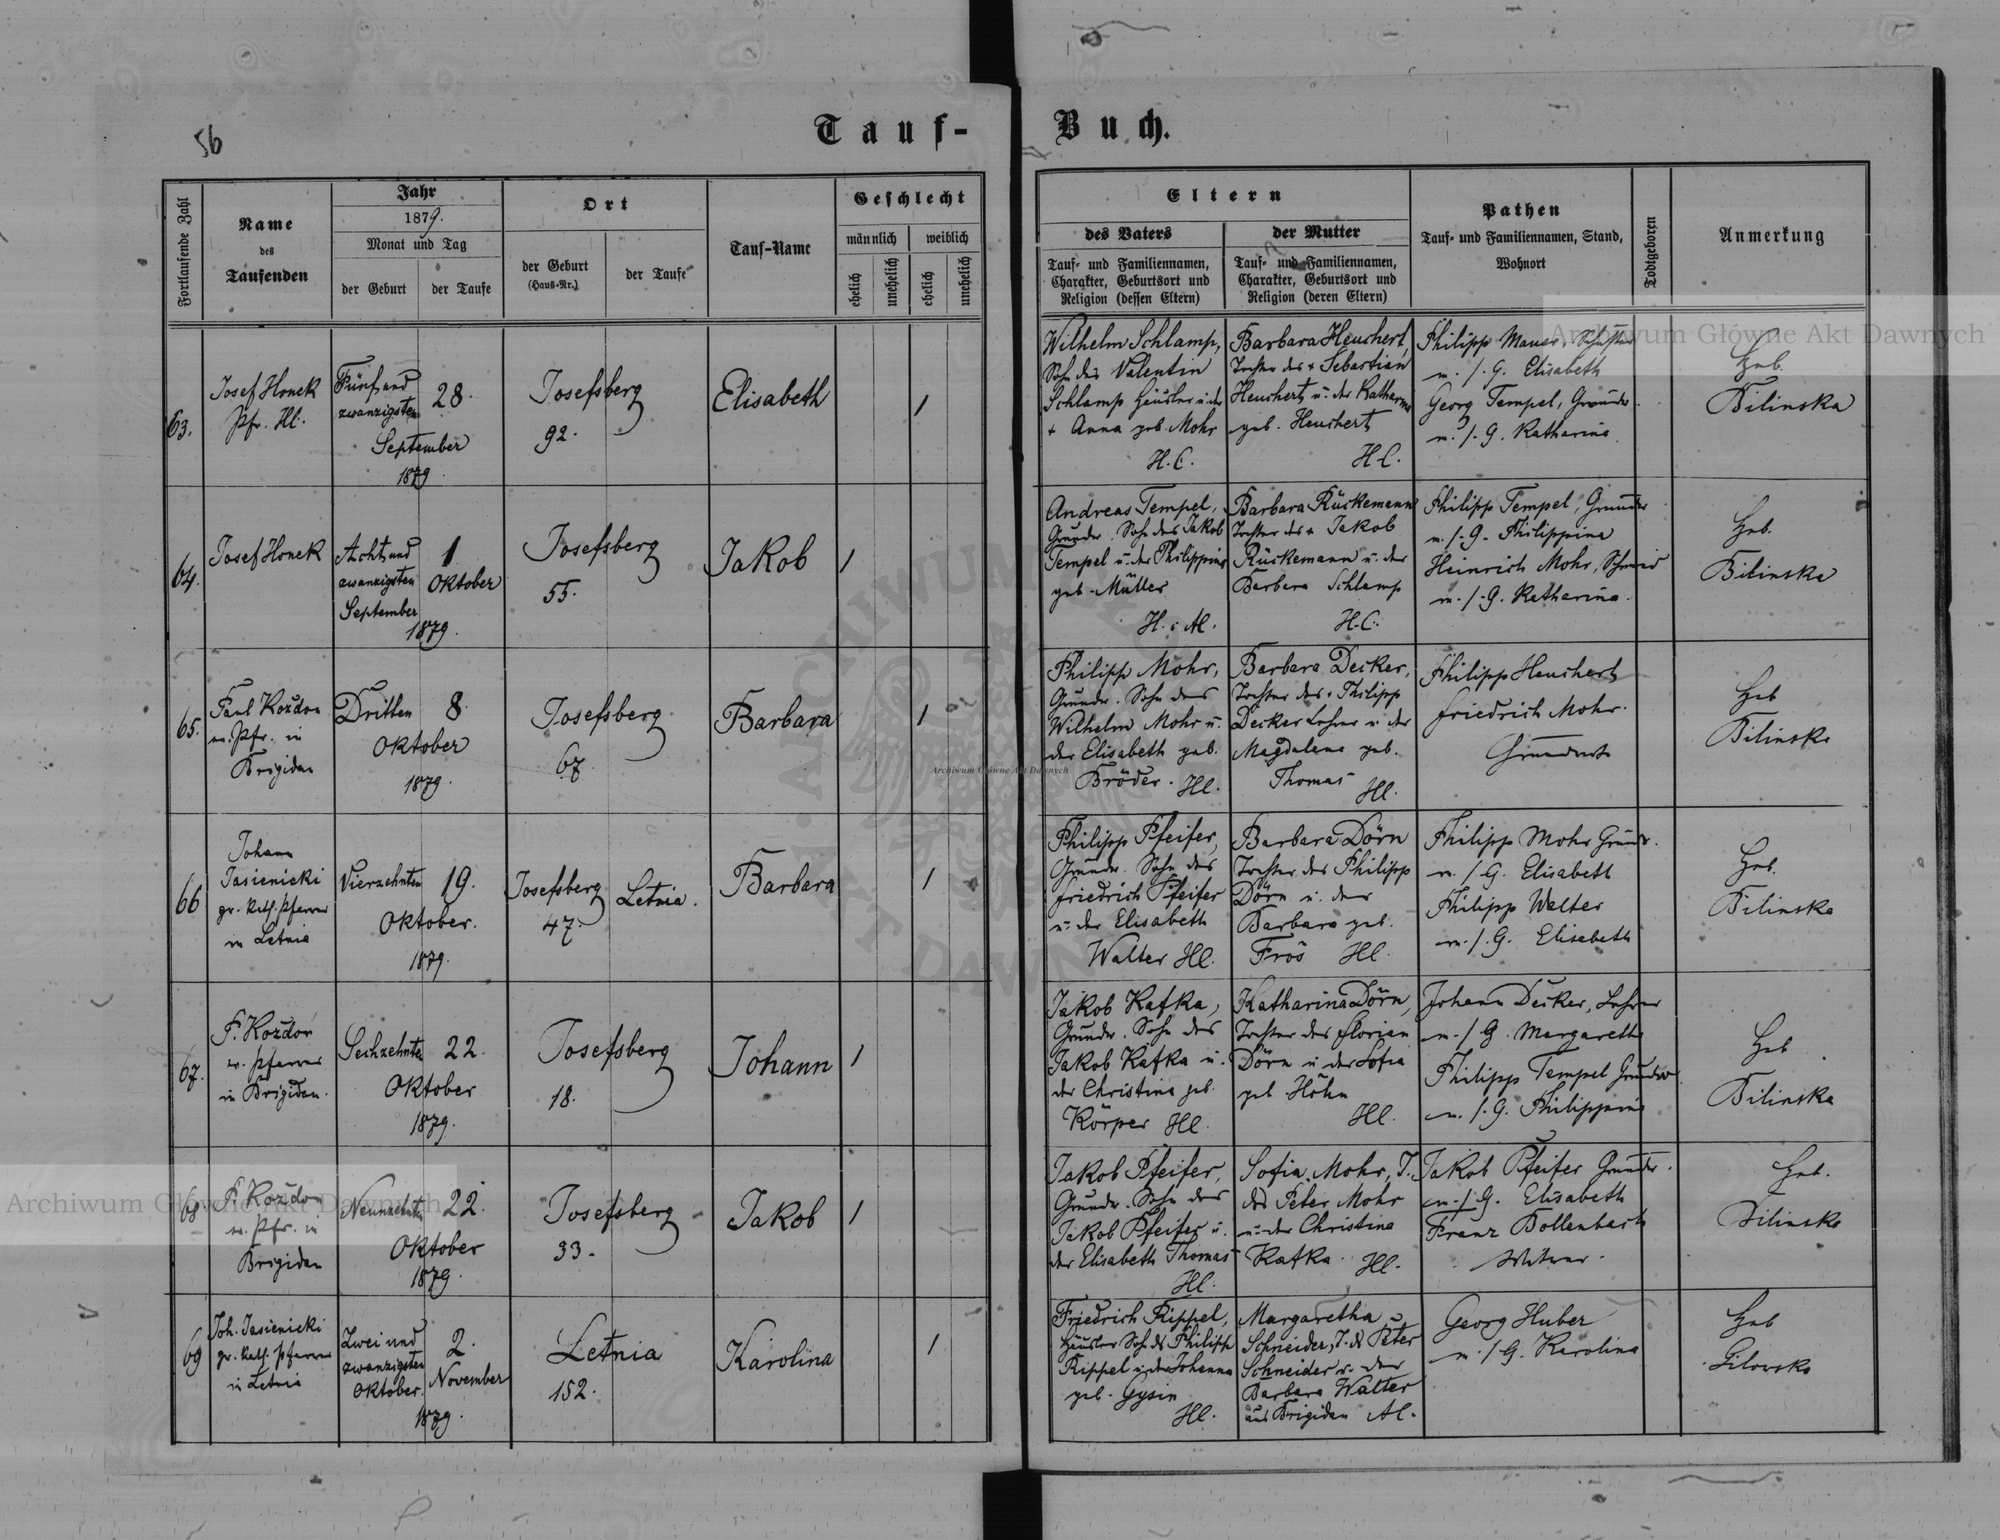 56
Tauf-Buch.
Fortlaufende Zahl
Name
des
Taufenden
Jahr
1879.
Monat und Tag
der Geburt
der Taufe
Ort
der Geburt
(Haus-Nr.)
der Taufe
Tauf-Name
Geschlecht
männlich
weiblich
ehelich
unehelich
ehelich
unehelich
Eltern
des Vaters
Tauf- und Familiennamen,
Charakter, Geburtsort und
Religion (dessen Eltern)
der Mutter
Tauf- und Familiennamen,
Charakter, Geburtsort und
Religion (deren Eltern)
Pathen
Tauf- und Familiennamen, Stand,
Wohnort
Todtgeboren
Anmerkung
63.
Josef Honek
Pfr. Hl.
Fünf und
zwanzigsten
September
1879
28.
Josefsberg
92.
Elisabeth
1
Wilhelm Schlamp,
Sohn des Valentin
Schlamp Häusler u. der
+ Anna geb. Mohr
H.C.
Barbara Heuchert
Tochter des + Sebastian
Heuchert u. der Katharina
geb. Heuchert
H.C.
Philipp Mauer, Schuster
u. s. G. Elisabeth
Georg Tempel, Grundw.
u. s. G. Katharina
Heb.
Bilinska
64.
Josef Honek
Acht und
zwanzigsten
September
1879.
1
Oktober
Josefsberg
55.
Jakob
1
Andreas Tempel,
Grundw. Sohn des Jakob
Tempel u. der Philippine
geb. Müller
H. c. Al.
Barbara Rückemann
Tochter des + Jakob
Rückemann u. der
Barbara Schlamp
H.C.
Philipp Tempel, Grundw
u. s. G. Philippina
Heinrich Mohr, Schmied
u. s. G. Katharina.
Heb.
Bilinska
65.
Paul Kozdon
ev. Pfr. in
Brigidau
Dritten
Oktober
1879.
8.
Josefsberg
67.
Barbara
1
Philipp Mohr,
Grundw. Sohn des
Wilhelm Mohr u.
der Elisabeth geb.
Bröder. Hl.
Barbara Decker,
Tochter des + Philipp
Decker Lehrer u. der
Magdalena geb.
Thomas Hl.
Philipp Heuchert
Friedrich Mohr.
Heb
Bilinska
66
Johann
Jasienicki
gr. kath. Pfarrer
in Letnia
Vierzehnten
Oktober.
1879.
19.
Josefsberg
47.
Letnia.
Barbara
1
Philipp Pfeifer,
Grundw. Sohn des
Friedrich Pfeifer
u. der Elisabeth
Walter Hl.
Barbara Dörn
Tochter des Philipp
Dörn u. der
Barbara geb.
Frös Hl.
Philipp Mohr Grundw.
u. s. G. Elisabeth
Philipp Walter
u. s. G. Elisabeth
Heb.
Bilinska
67.
P. Kozdon
ev. Pfarrer
in Brigidau.
Sechzehnten
Oktober
1879.
22.
Josefsberg
18.
Johann
1
Jakob Kafka,
Grundw. Sohn des
Jakob Kafka u.
der Christina geb.
Körper Hl.
Katharina Dörn,
Tochter des Florian
Dörn u. der Sofia
geb Höhn
Hl.
Johann Decker, Lehrer
u. s. G. Margaretha
Philipp Tempel Grundw
u. s. G. Philippine
Heb
Bilinska
68
P. Kozdon
ev. Pfr. in
Brigidau
Neunzehnten
Oktober
1879.
22.
Josefsberg
33.
Jakob
1
Jakob Pfeifer,
Grundw. Sohn des
Jakob Pfeifer u.
der Elisabeth Thomas
Hl.
Sofia Mohr, T.
des Peter Mohr
u. der Christina
Kafka. Hl.
Jakob Pfeifer Grundw.
u. s. G. Elisabeth
Franz Bollenbach
Witwer.
Heb.
Bilinska
69
Joh. Jasienicki
gr. kath. Pfarrer
in Letnia
Zwei und
zwanzigsten
Oktober.
1879.
2.
November
Letnia
152.
Karolina
1
Friedrich Rippel,
Häusler Sohn ds Philipp
Rippel u. der Johanna
geb. Gysin
Hl.
Margaretha
Schneider, T. ds Peter
Schneider u. der
Barbara Walter
aus Brigidau Al.
Georg Huber
u. s. G. Karolina
Heb
Archiwum Główne Akt Dawnych
Archiwum Główne Akt Dawnych
Archiwum Główne Akt Dawnych